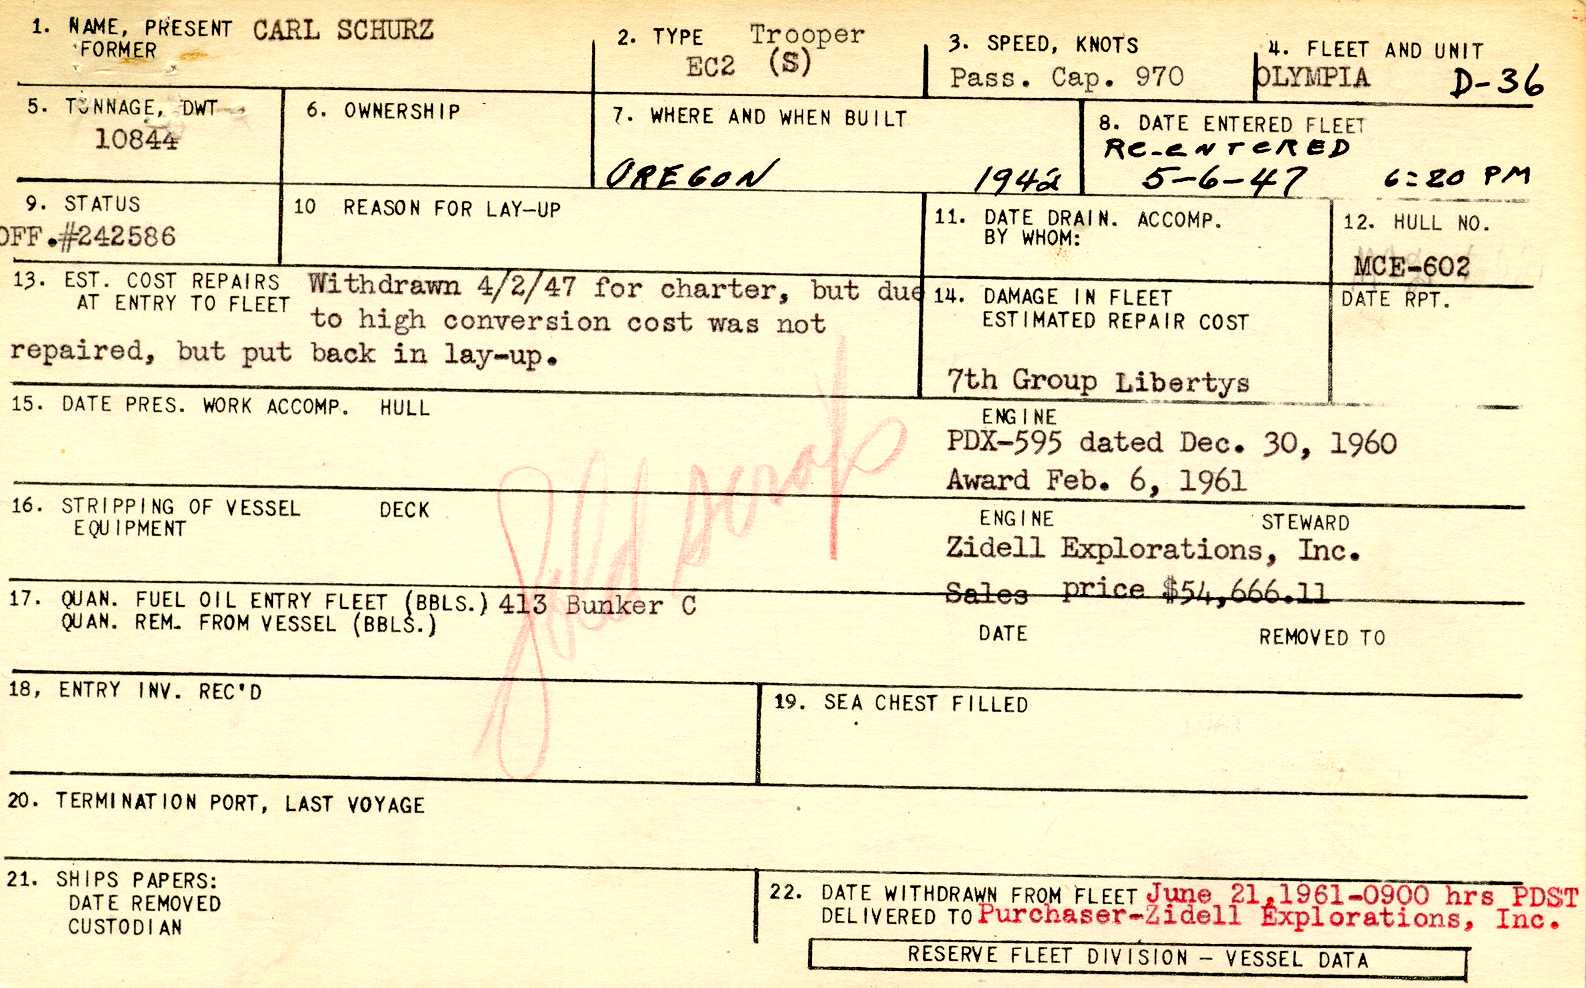 1. NAME, PRESENT CARL SCHURZ
FORMER
2. TYPE Trooper
EC2 (S)
3. SPEED, KNOTS
Pass. Cap. 970
4. FLEET AND UNIT
OLYMPIA D-36
5. TONNAGE, DWT
10844
6. OWNERSHIP
7. WHERE AND WHEN BUILT
OREGON 1942
8. DATE ENTERED FLEET
RE-ENTERED
5-6-47 6:20 PM
9. STATUS
OFF.#242586
10 REASON FOR LAY-UP
11. DATE DRAIN. ACCOMP.
BY WHOM:
12. HULL NO.
MCE-602
13. EST. COST REPAIRS Withdrawn 4/2/47 for charter, but due
AT ENTRY TO FLEET to high conversion cost was not
repaired, but put back in lay-up.
14. DAMAGE IN FLEET
ESTIMATED REPAIR COST
DATE RPT.
7th Group Libertys
15. DATE PRES. WORK ACCOMP. HULL
ENGINE
PDX-595 dated Dec. 30, 1960
Award Feb. 6, 1961
Sold scrap
16. STRIPPING OF VESSEL DECK
EQUIPMENT
ENGINE STEWARD
Zidell Explorations, Inc.
Sales price $54,666.11
17. QUAN. FUEL OIL ENTRY FLEET (BBLS.) 413 Bunker C
QUAN. REM. FROM VESSEL (BBLS.)
DATE REMOVED TO
18, ENTRY INV. REC'D
19. SEA CHEST FILLED
20. TERMINATION PORT, LAST VOYAGE
21. SHIPS PAPERS:
DATE REMOVED
CUSTODIAN
22. DATE WITHDRAWN FROM FLEET June 21,1961-0900 hrs PDST
DELIVERED TO Purchaser-Zidell Explorations, Inc.
RESERVE FLEET DIVISION - VESSEL DATA